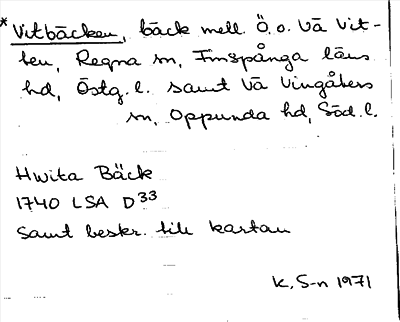 * Vitbäcken, bäck mell. Ö. o. Vä Vit-
ten, Regna sn, Finspånga läns
hd, Östg. l. samt Vä Vingåkers
sn, Oppunda hd, Söd. l.
Hwita Bäck
1740 LSA D33
samt beskr. till kartan
K. S-n 1971